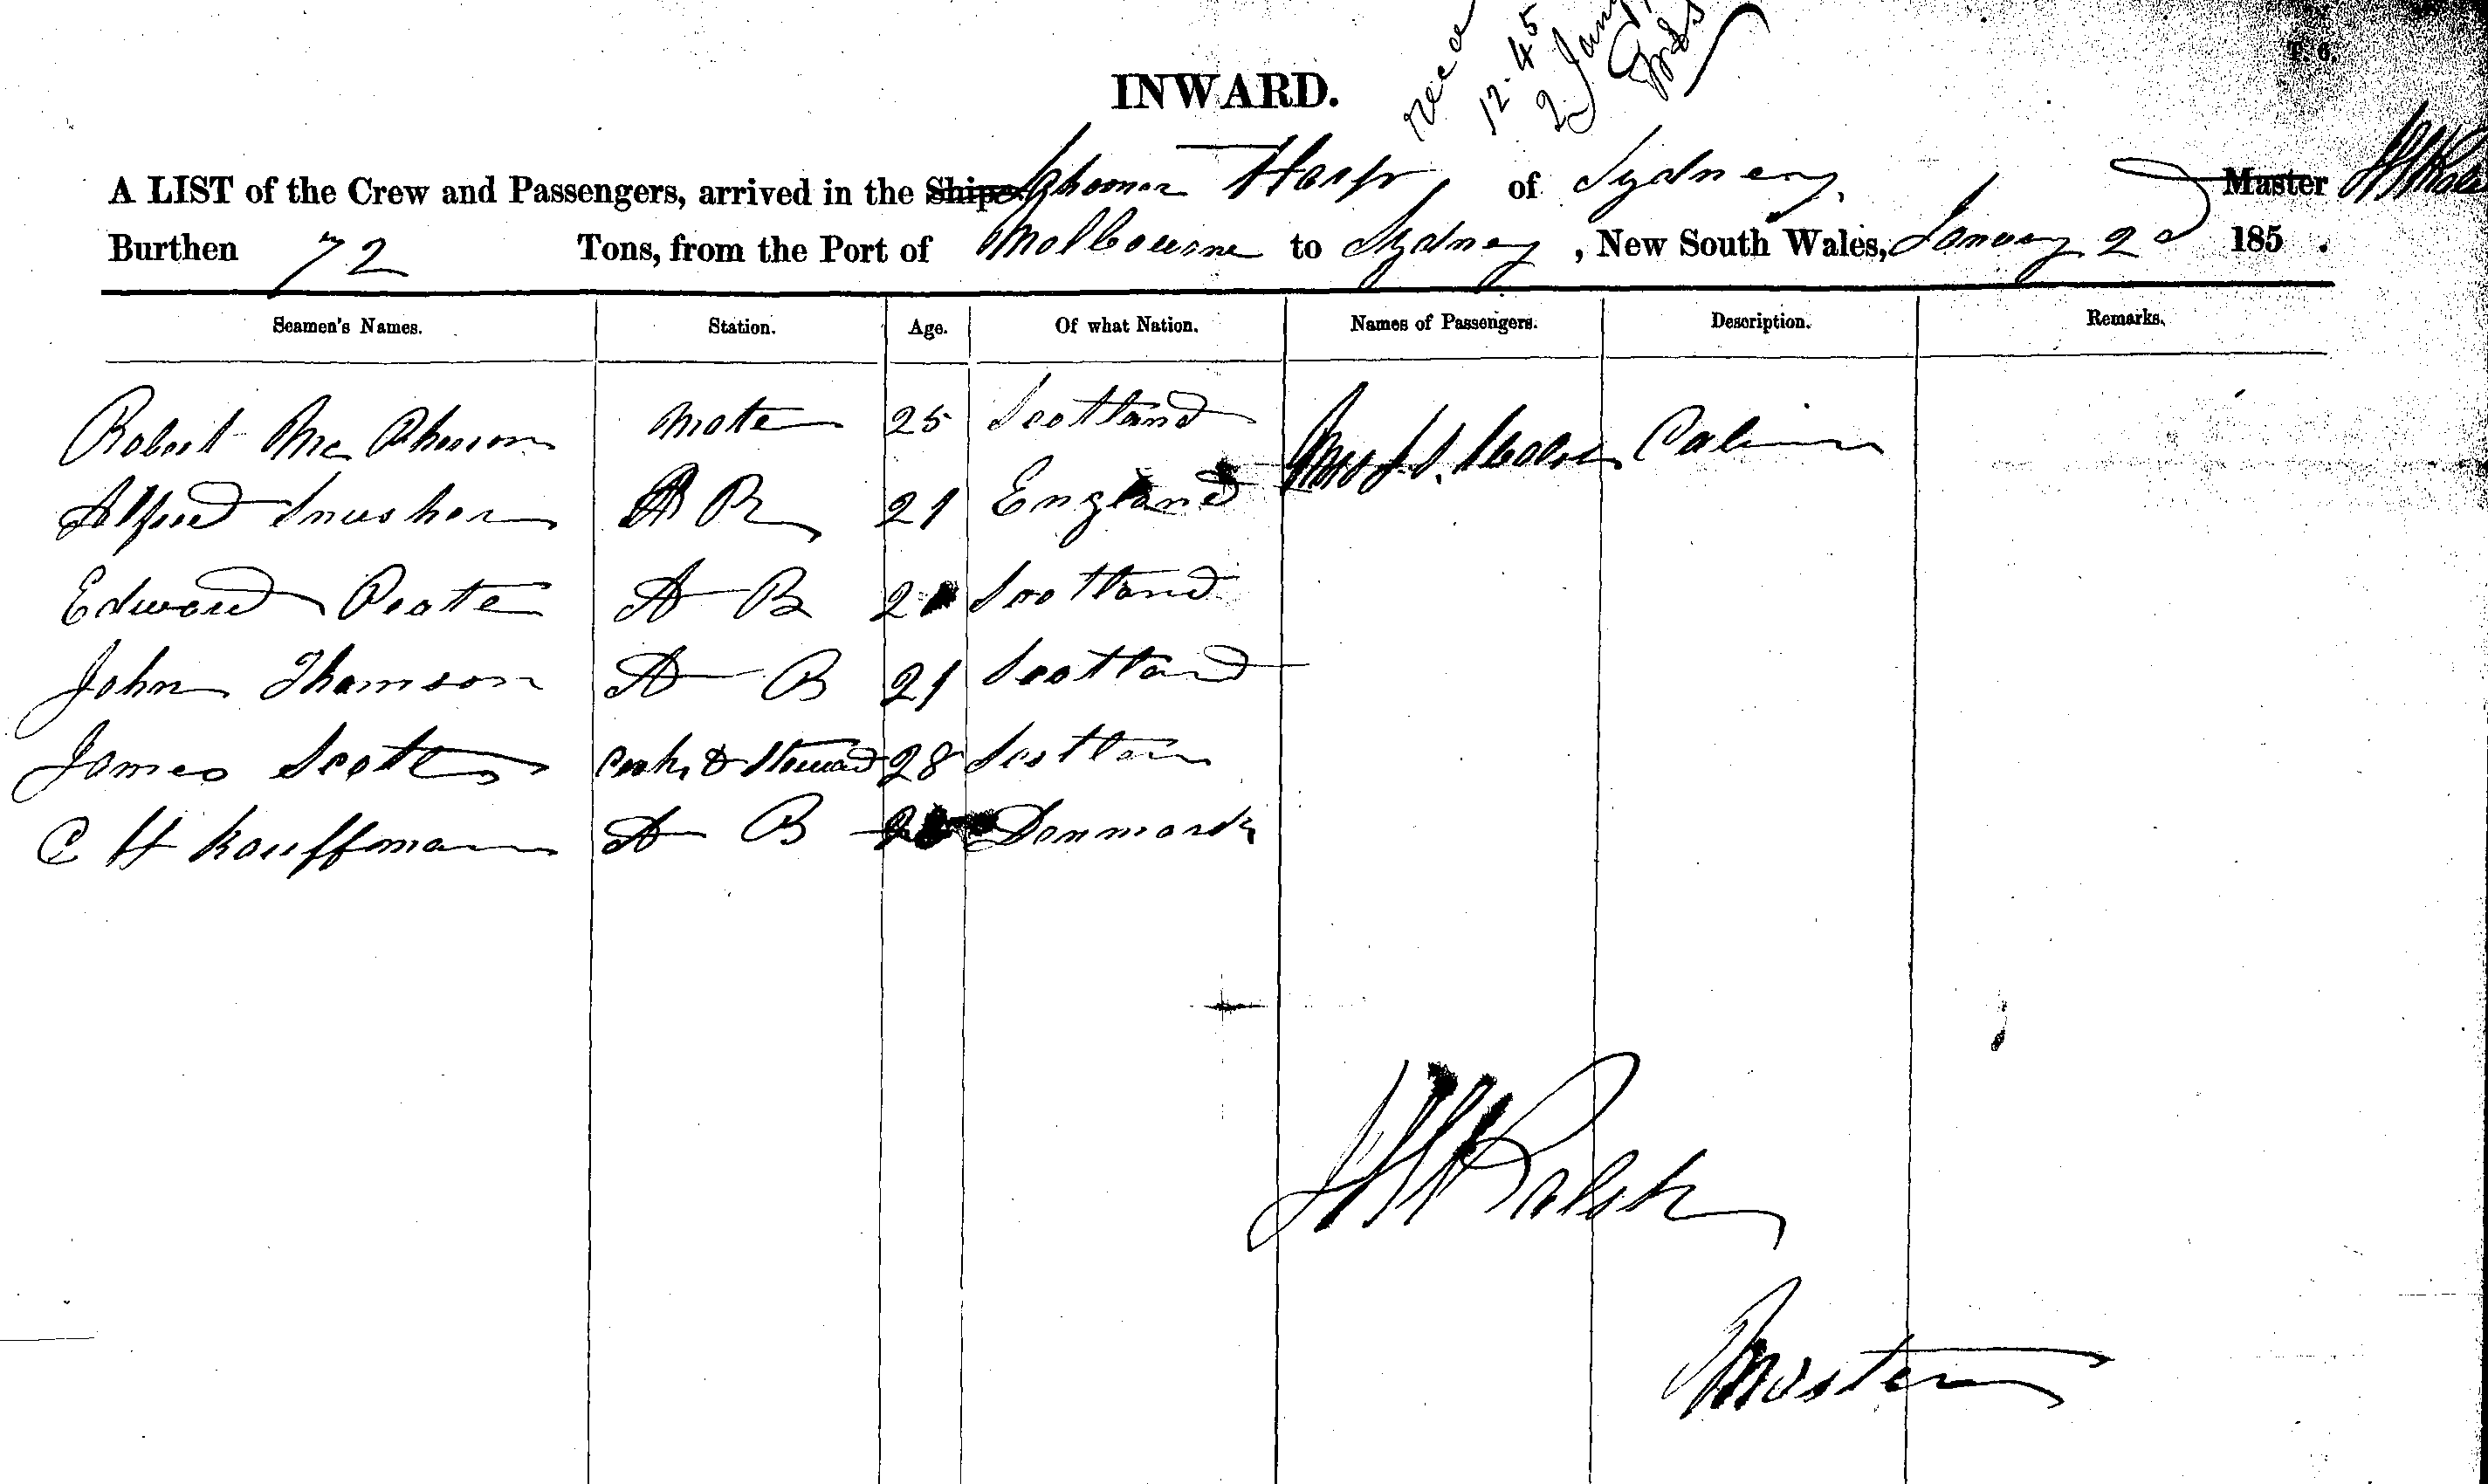 T. 6.
12-45
2 Jany
INWARD.
A LIST of the Crew and Passengers, arrived in the Ship Schooner Harp of Sydney, Master
Burthen 72 Tons, from the Port of Melbourne to Sydney, New South Wales, January 2d 185 .
Seamen's Names. Station. Age. Of what Nation. Names of Passengers. Description. Remarks.
Robert Mc Pherson Mate 25 Scotland Cabin
Alfred A B 21 England
Edward A B 2 Scotland
John Thomson A B 21 Scotland
James Scott Cook & Steward 28 Scotland
C H Kauffman A B 2 Denmark
Master